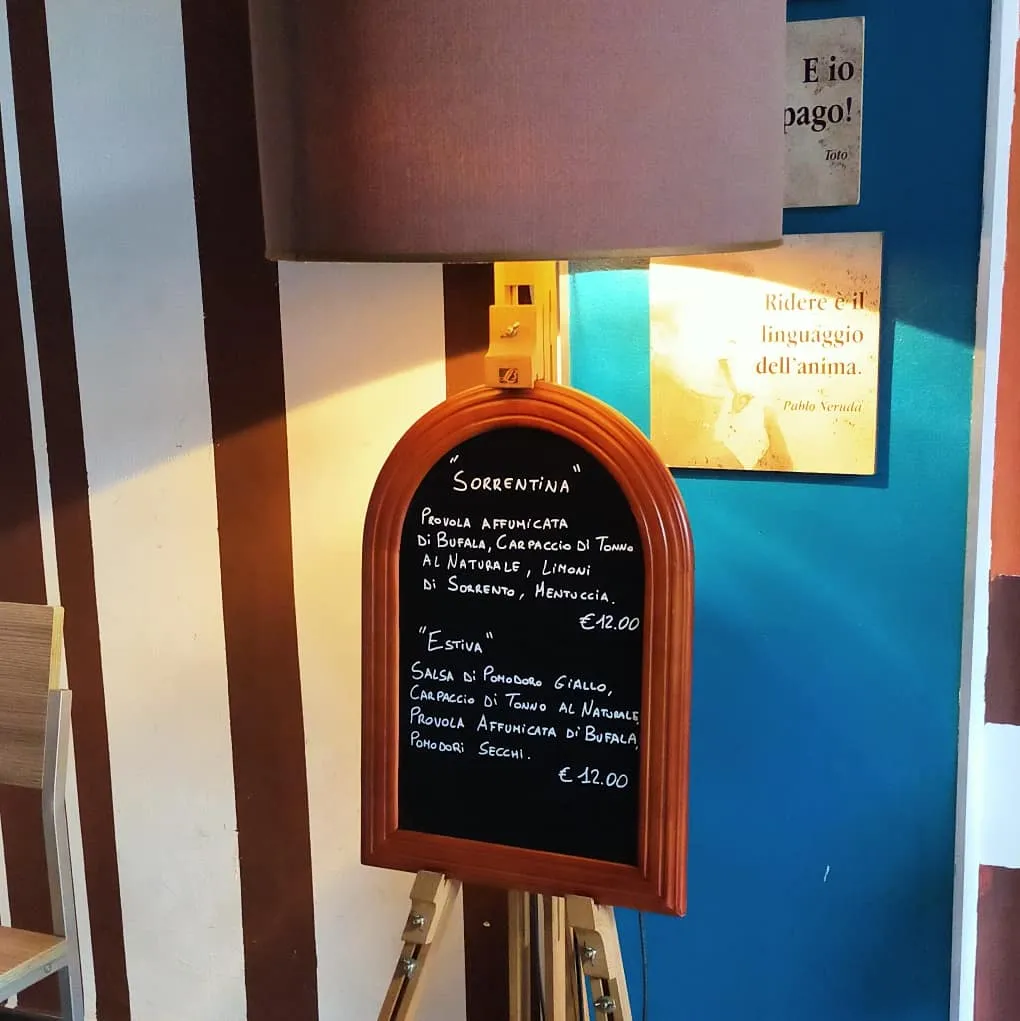 E io
pago!
Toto
Ridere è il
linguaggio
dell'anima.
Pablo Neruda
"SORRENTINA"
PROVOLA AFFUMICATA
DI BUFALA, CARPACCIO DI TONNO
AL NATURALE, LIMONI
DI SORRENTO, MENTUCCIA.
€12.00
"ESTIVA"
SALSA DI POMODORO GIALLO,
CARPACCIO DI TONNO AL NATURALE,
PROVOLA AFFUMICATA DI BUFALA,
POMODORI SECCHI.
€ 12.00